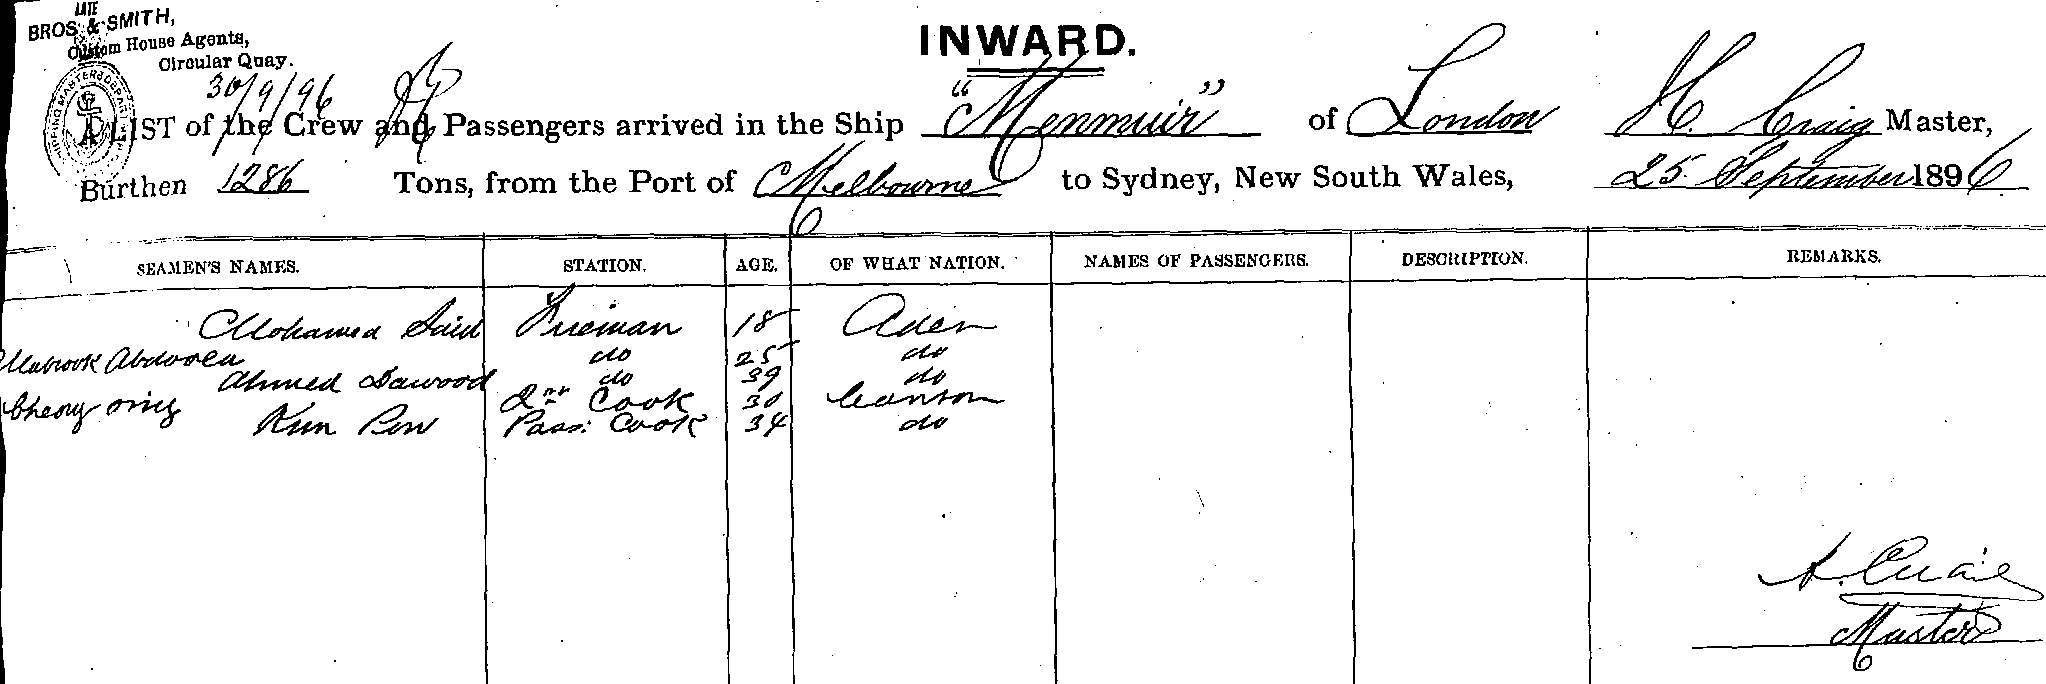 LATE
BROS. & SMITH,
Custom House Agents,
Circular Quay.
INWARD.
30/9/96
A LIST of the Crew and Passengers arrived in the Ship "Menmuir" of London H. Craig Master,
Burthen 1286 Tons, from the Port of Melbourne to Sydney, New South Wales, 25 September 1896.
SEAMEN'S NAMES. STATION. AGE. OF WHAT NATION. NAMES OF PASSENGERS. DESCRIPTION. REMARKS.
Mohamed Said Fireman 18 Aden
Mabrook Abdoola do 25 do
Ahmed Dawood do 39 do
Cheong 2nd Cook 30 Canton
Kum Pow Pass: Cook 34 do
Craig
Master